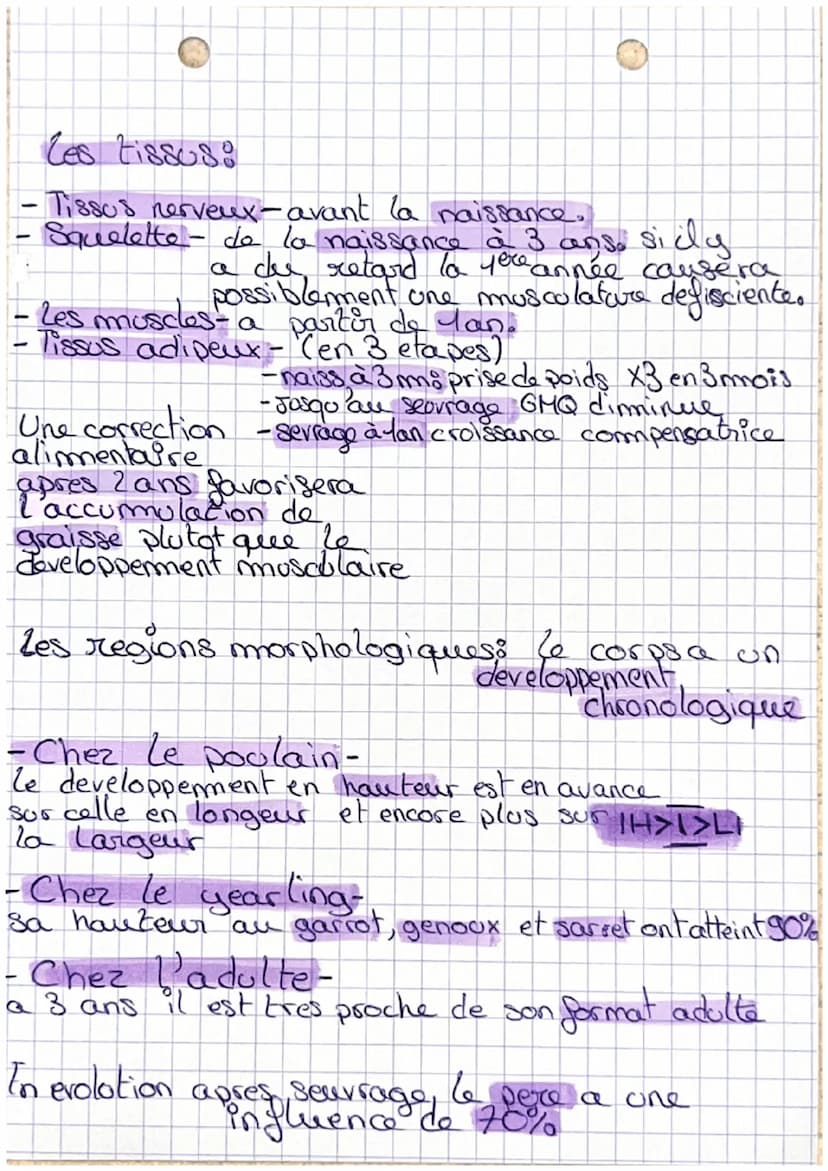 Les tissus:
- Tissus nerveux - avant la naissance.
- Squelette - de la naissance à 3 ans. Si il y
a du retard la 1ère année causera
possiblement une musculature defisciente.
- Les muscles - a partir de 1an.
- Tissus adipeux - (en 3 etapes)
- naiss à 3 mms prise de poids X3 en 3 mois
- Jusqu'au seuvrage GMQ dimminue
- sevrage à 1an croissance compensatrice
Une correction
alimentaire
apres 2 ans favorisera
l'accumulation de
graisse plutot que le
developpement musculaire
Les regions morphologiques: le corps a un
developpement
chronologique
- Chez le poulain -
le developpement en hauteur est en avance
sur celle en longeur et encore plus sur |H>l>L|
la largeur
- Chez le yearling -
sa hauteur au garrot, genoux et sarret ont atteint 90%
- Chez l'adulte -
a 3 ans il est tres proche de son format adulte
En evolution apres seuvrage, le pere a une
influence de 70%